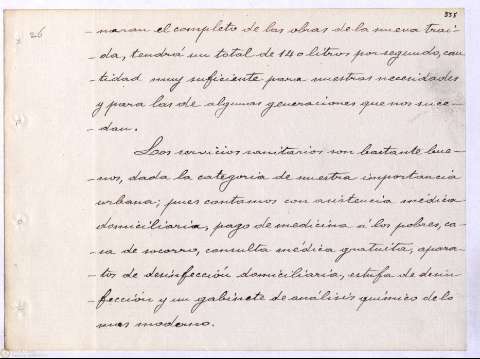 335
26
-naran el completo de las obras de la nueva trai-
-da, tendrá un total de 140 litros por segundo, can-
-tidad muy suficiente para nuestras necesidades
y para las de algunas generaciones que nos suce-
-dan.
Los servicios sanitarios son bastante bue-
-nos, dada la categoria de nuestra importancia
urbana; pues contamos con asistencia médica
domiciliaria, pago de medicina á los pobres, ca-
-sa de socorro, consulta médica gratuita, apara-
-tos de desinfección domiciliaria, estufa de desin-
-fección y un gabinete de análisis químico de lo
mas moderno.